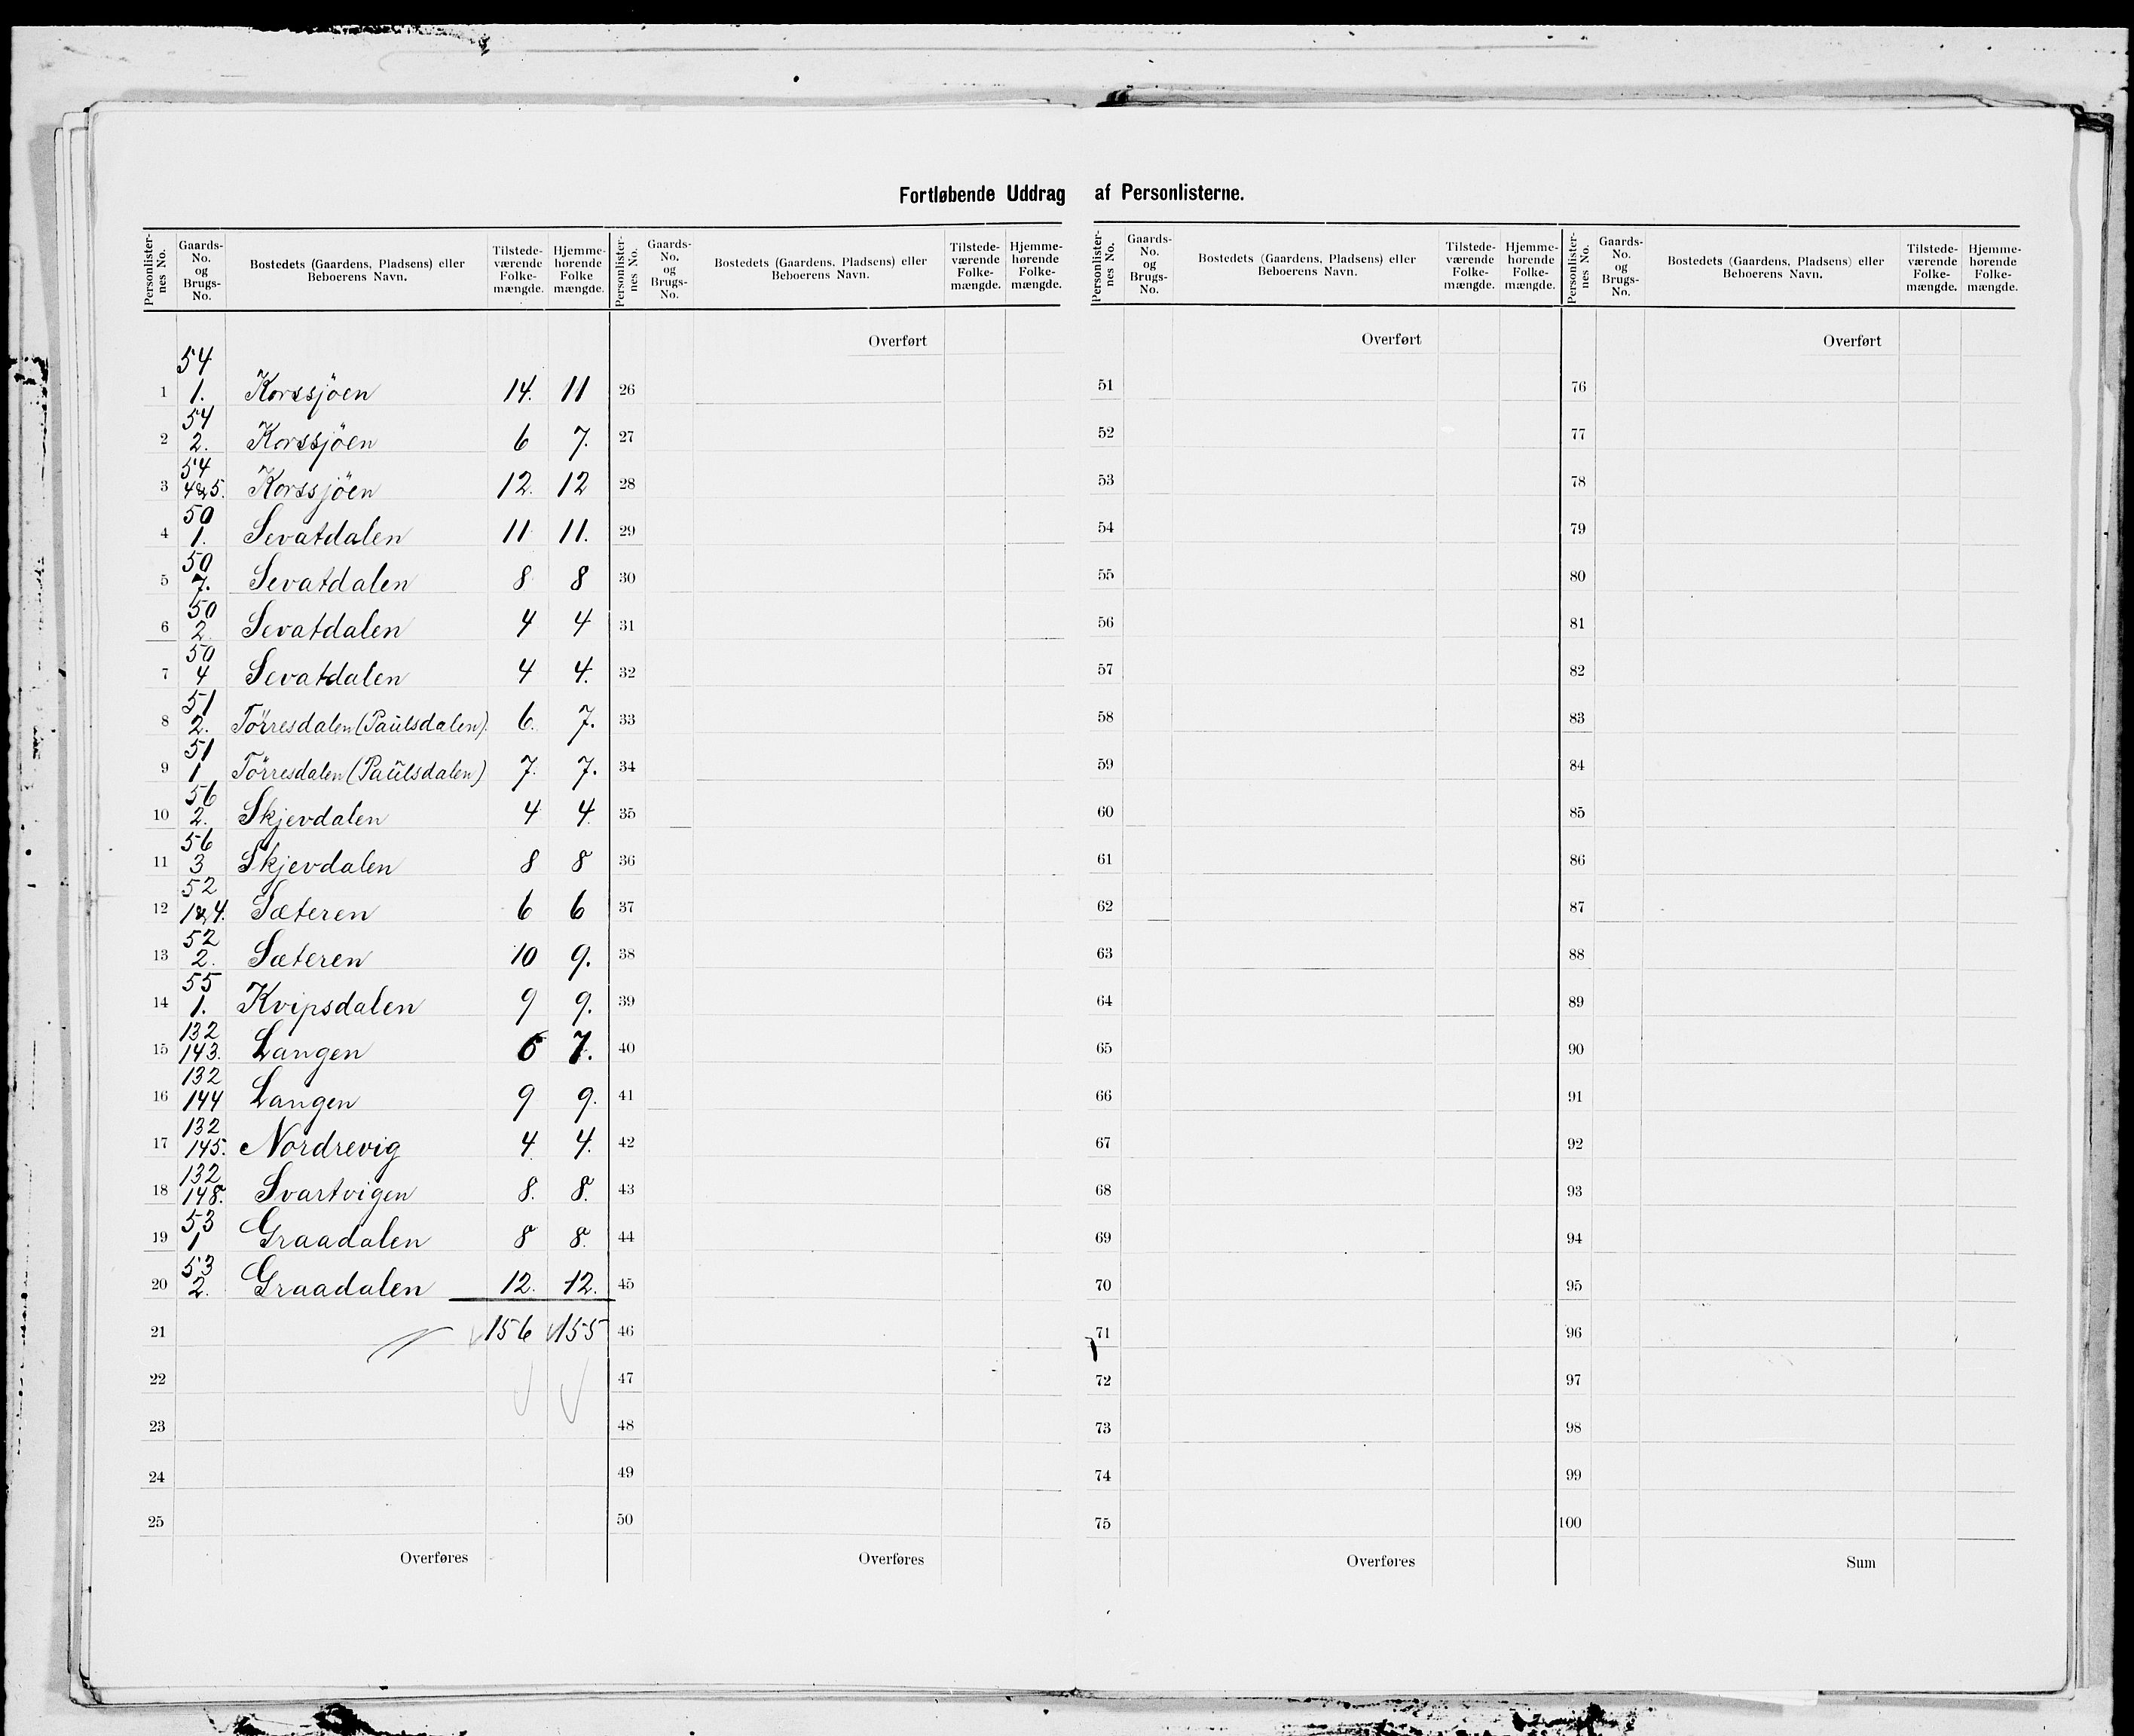 Fortløbende Uddrag af Personlisterne.
Personlister-nes No. Gaards-No. og Brugs-No. Bostedets (Gaardens, Pladsens) eller Beboerens Navn. Tilstede-værende Folke-mængde. Hjemme-hørende Folke mængde.
54
1 1. Korssjöen 14. 11
54
2 2. Korssjöen 6 7.
54
3 4&5. Korssjöen 12. 12
50
4 1. Sevatdalen 11 11.
50
5 7. Sevatdalen 8 8
50
6 2. Sevatdalen 4 4
50
7 4 Sevatdalen 4 4.
51
8 2. Törresdalen (Paulsdalen). 6. 7.
51
9 1 Törresdalen (Paulsdalen) 7. 7.
56
10 2. Skjevdalen 4 4
56
11 3 Skjevdalen 8 8
52
12 1&4. Sæteren 6 6
52
13 2. Sæteren 10 9.
55
14 1. Kvipsdalen 9 9.
132
15 143. Langen 6 7.
132
16 144 Langen 9 9.
132
17 145. Nordrevig 4 4.
132
18 148. Svartvigen 8. 8.
53
19 1 Graadalen 8 8.
53
20 2. Graadalen 12. 12.
21 156 155
22
23
24
25
Overføres
Personlister-nes No. Gaards-No. og Brugs-No. Bostedets (Gaardens, Pladsens) eller Beboerens Navn. Tilstede-værende Folke-mængde. Hjemme-hørende Folke-mængde.
Overført
26
27
28
29
30
31
32
33
34
35
36
37
38
39
40
41
42
43
44
45
46
47
48
49
50
Overføres
Personlister-nes No. Gaards-No. og Brugs-No. Bostedets (Gaardens, Pladsens) eller Beboerens Navn. Tilstede-værende Folke-mængde. Hjemme-hørende Folke-mængde.
Overført
51
52
53
54
55
56
57
58
59
60
61
62
63
64
65
66
67
68
69
70
71
72
73
74
75
Overføres
Personlister-nes No. Gaards-No. og Brugs-No. Bostedets (Gaardens, Pladsens) eller Beboerens Navn. Tilstede-værende Folke-mængde. Hjemme-hørende Folke-mængde.
Overført
76
77
78
79
80
81
82
83
84
85
86
87
88
89
90
91
92
93
94
95
96
97
98
99
100
Sum